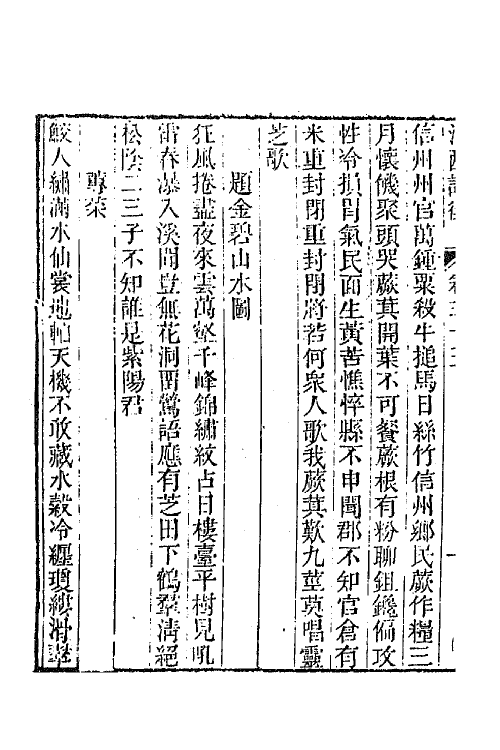 江西詩徵 卷三十三 一
信州州官萬鍾粟殺牛搥馬日絲竹信州鄉民蕨作糧三
月懷饑聚頭哭蕨萁開葉不可餐蕨根有粉聊鉏鑱偏攻
性冷損胃氣民面生黃苦憔悴縣不申聞郡不知官倉有
米重封閉重封閉將若何衆人歌我蕨萁歎九莖莫唱靈
芝歌
題金碧山水圖
狂風捲盡夜來雲萬壑千峰錦繡紋占日樓臺平樹見吼
雷春瀑入溪聞豈無花洞雷鶯語應有芝田下鶴羣淸絕
松陰二三子不知誰是紫陽君
蓴菜
鮫人繡滿水仙裳地軸天機不敢藏水縠冷纏瓊縷滑